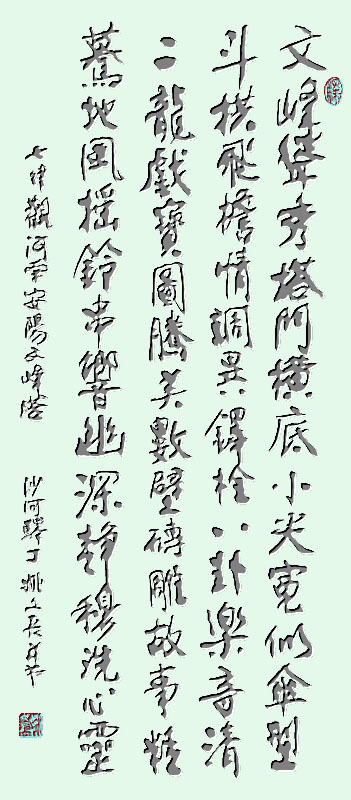 文峰聳秀塔門橫底小尖寬似傘型
斗栱飛檐情調異鐸栓八卦樂音清
二龍戲寶圖騰美數壁磚雕故事精
驀地風搖鈴串響幽深靜穆洗心靈
七律觀河南安陽文峰塔 沙河驛丁姚文長